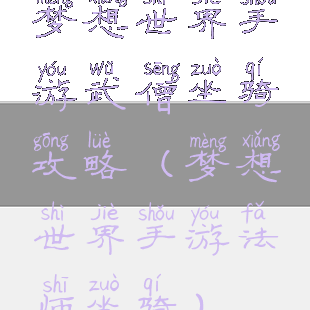 mèng xiǎng shì jiè shǒu
梦想世界手
yóu wǔ sēng zuò qí
游武僧坐骑
gōng lüè mèng xiǎng
攻略(梦想
shì jiè shǒu yóu fǎ
世界手游法
shī zuò qí
师坐骑)